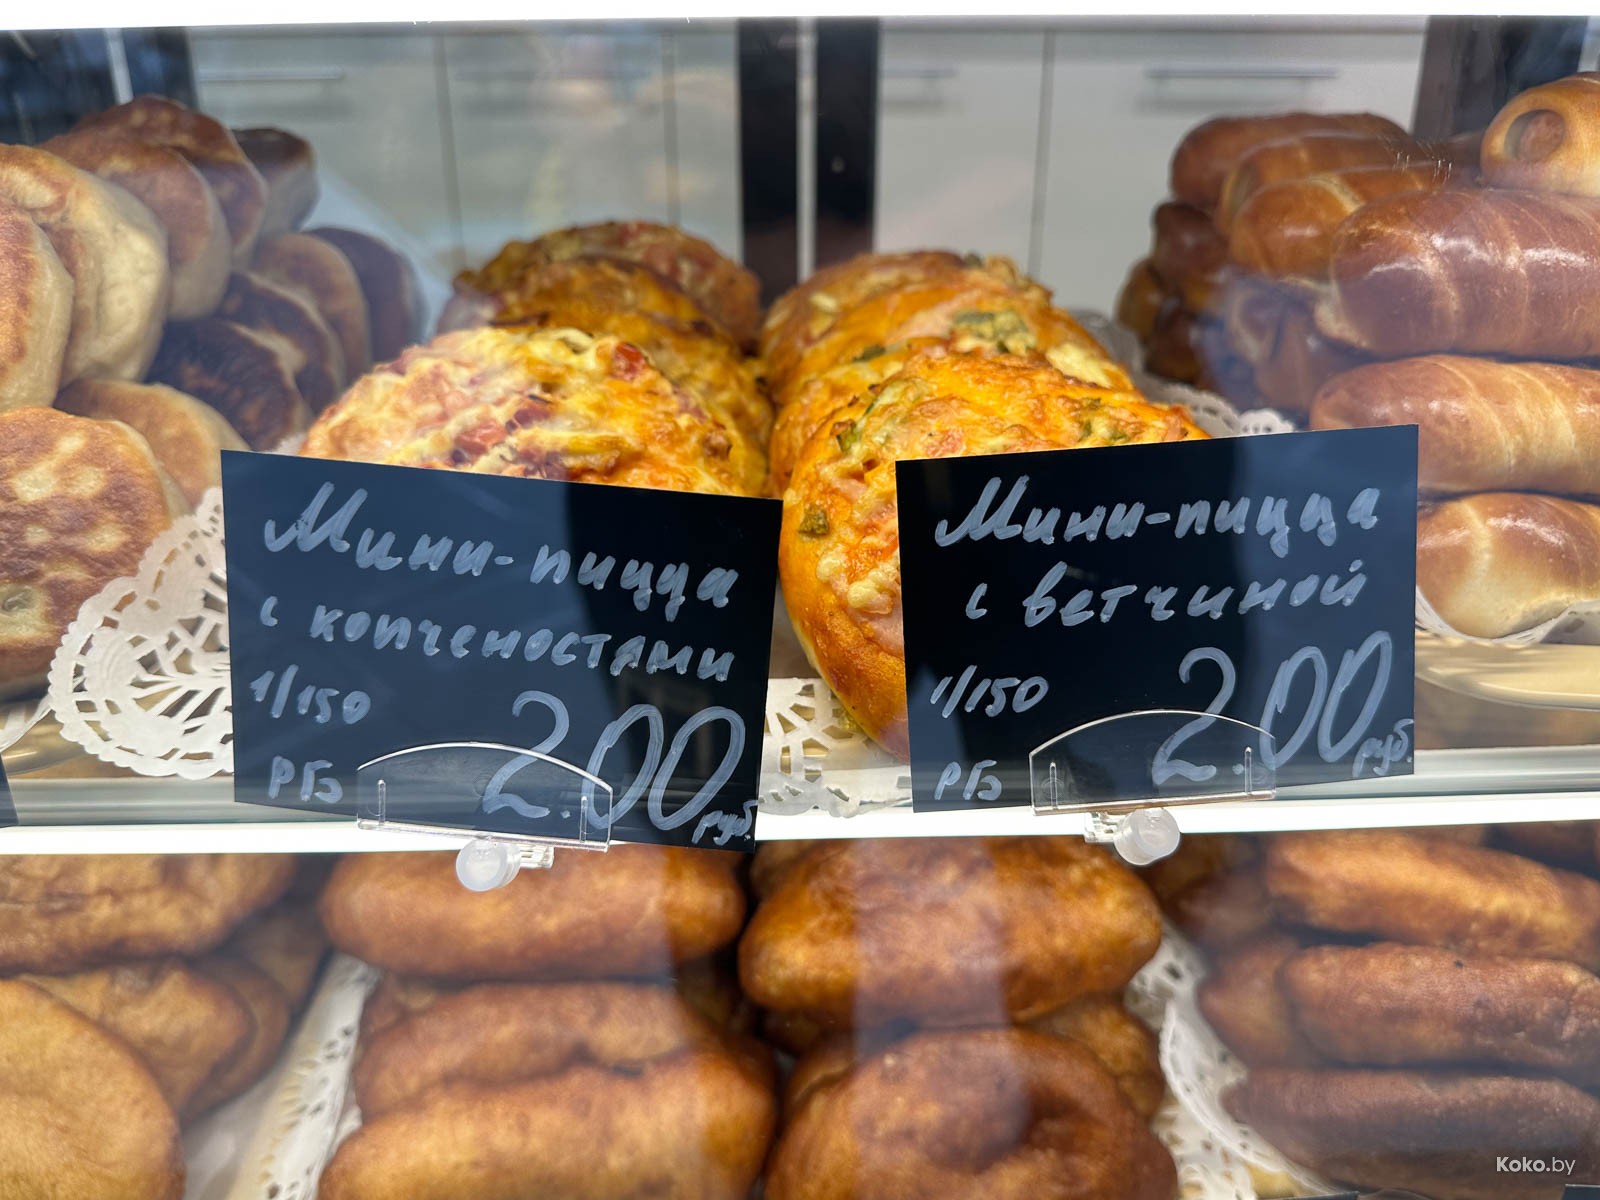 Мини-пицца
с копченостями
1/150
2.00 руб.
РБ
Мини-пицца
с ветчиной
1/150
2.00 руб.
РБ
Koko.by